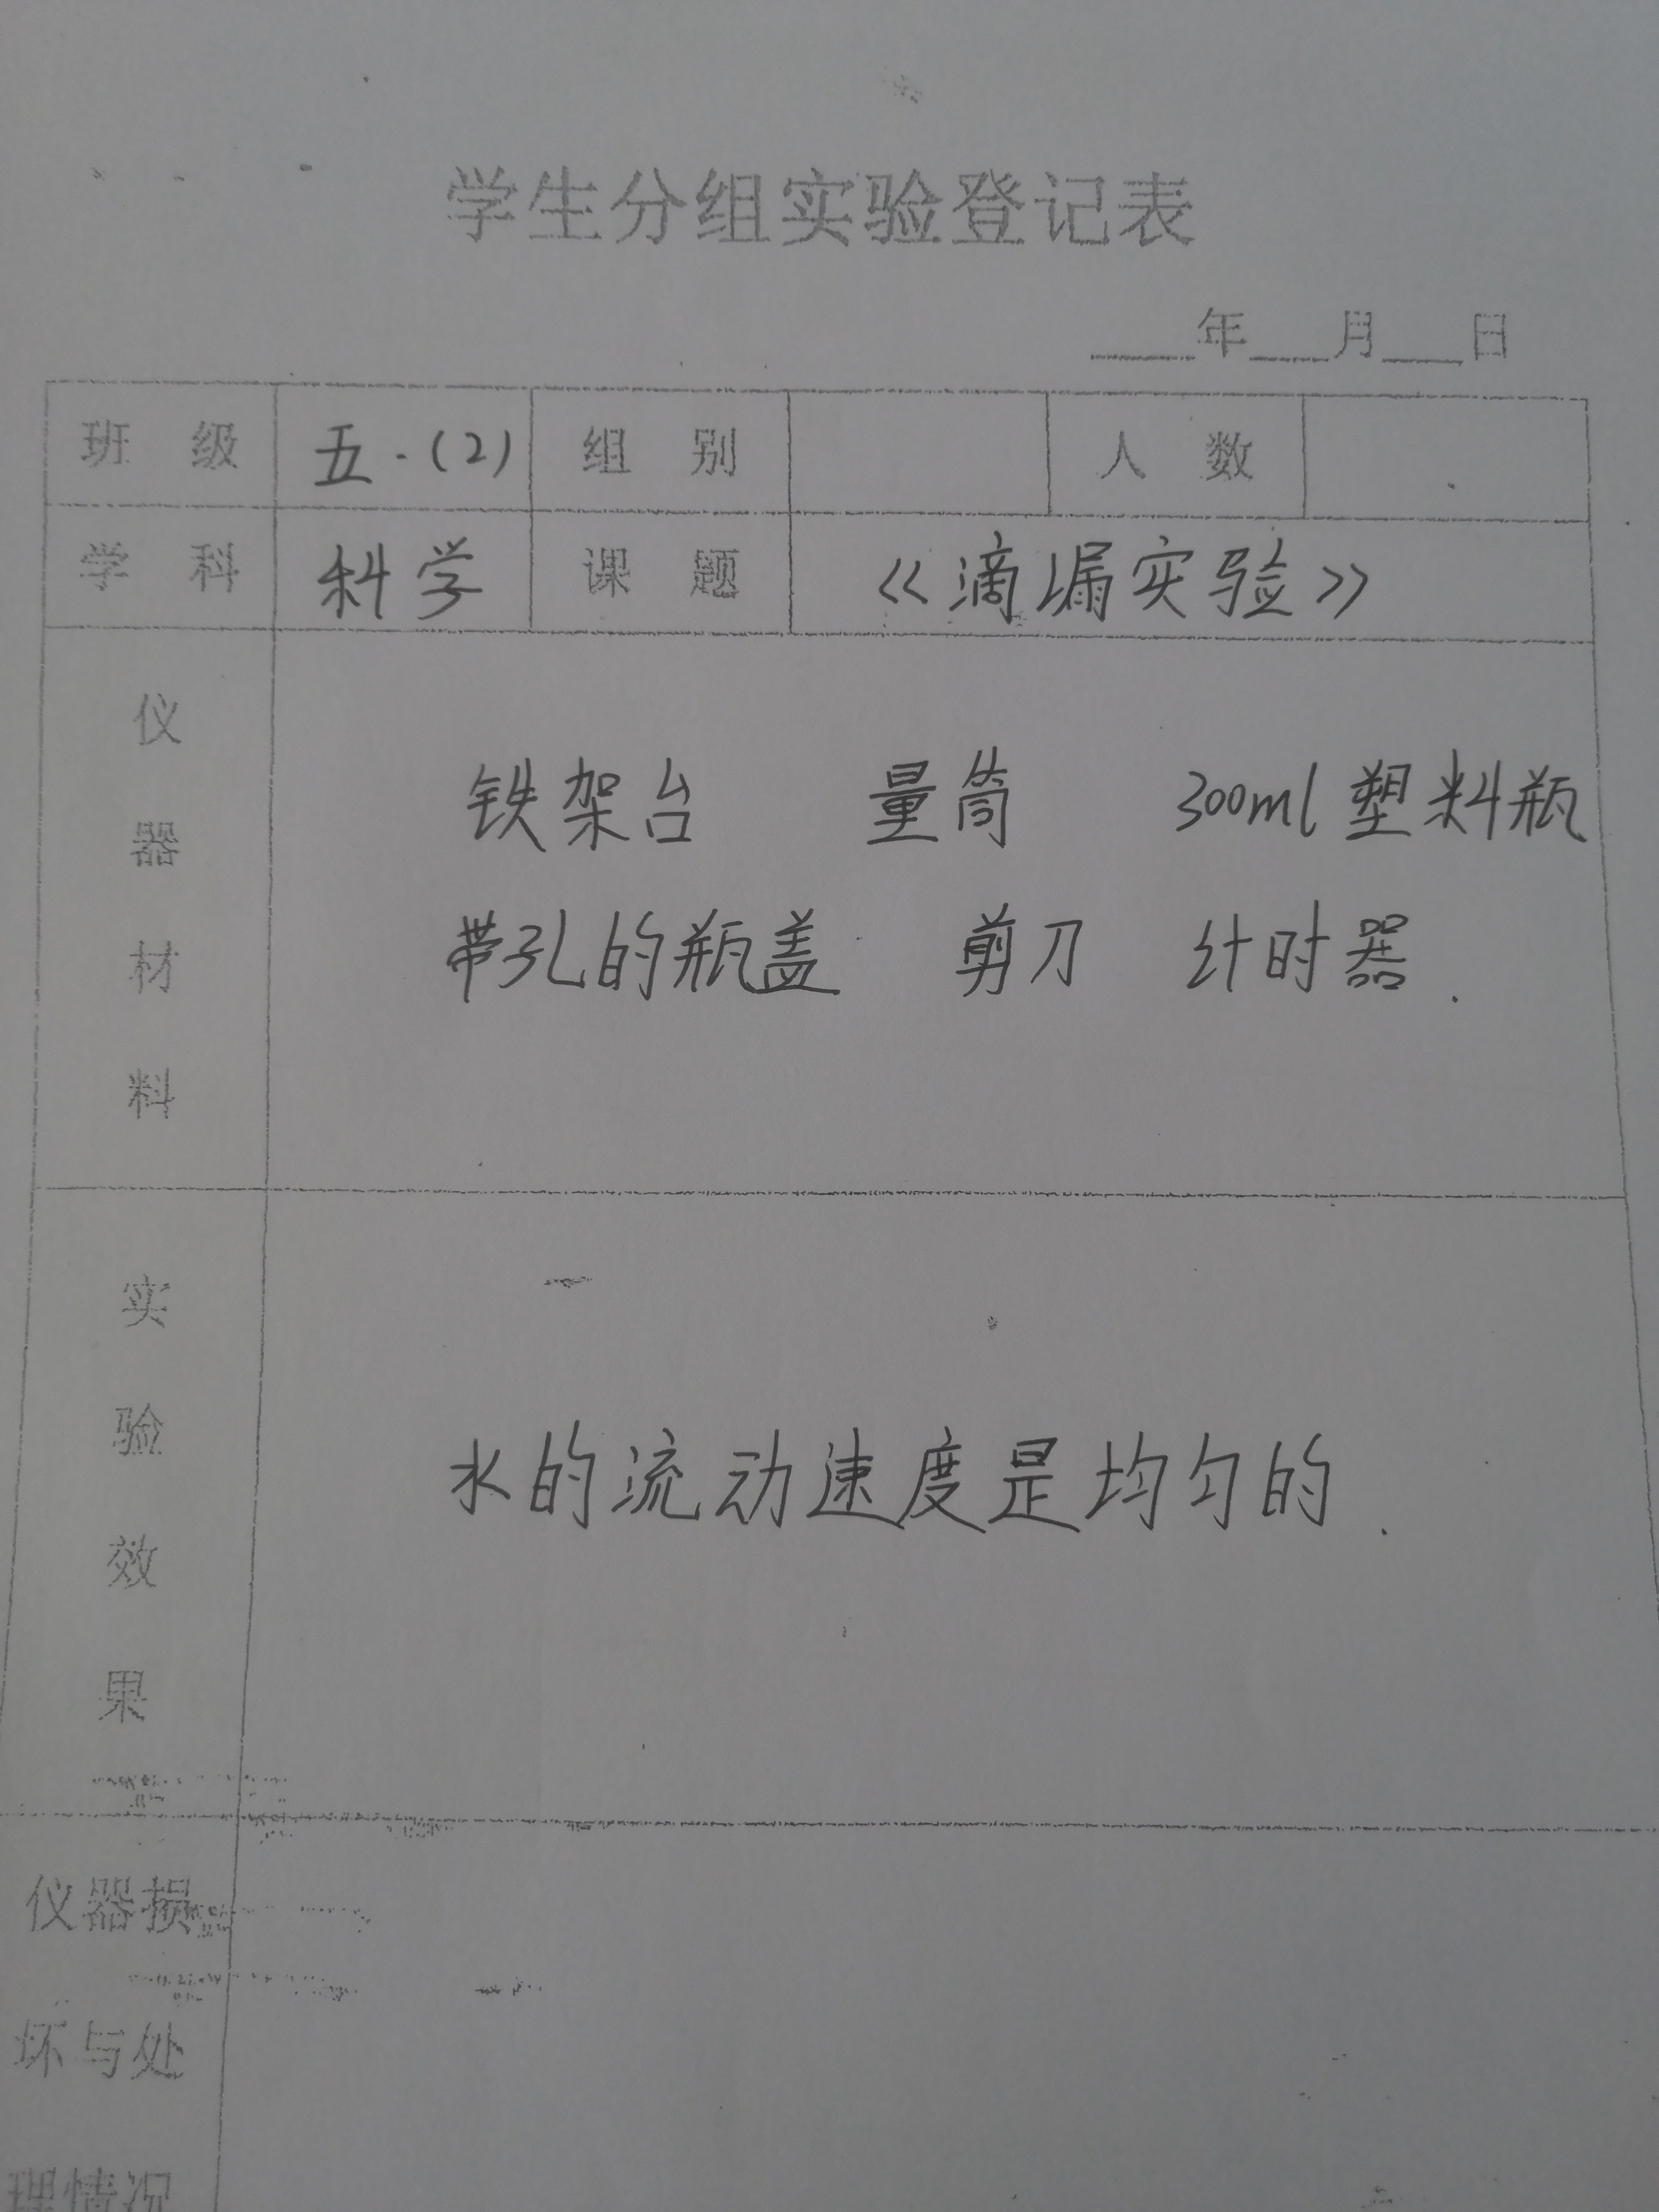 学生分组实验登记表
____年___月___日
班 级 五.(2) 组 别 人 数
学 科 科学 课 题 《滴漏实验》
仪器材料
铁架台 量筒 300ml塑料瓶
带孔的瓶盖 剪刀 计时器.
实验效果
水的流动速度是均匀的.
仪器损
坏与处
理情况